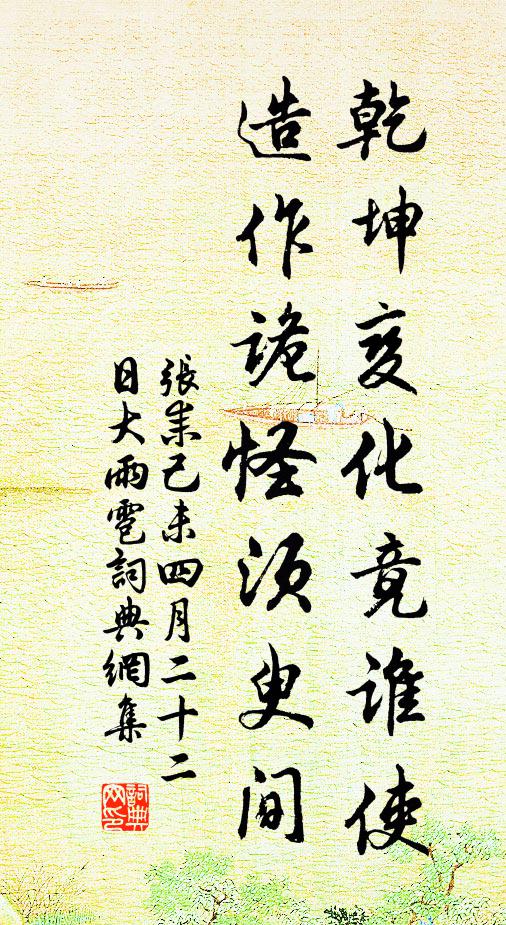 乾坤变化竟谁使
造作诡怪须臾间
張耒己未四月二十二
日大雨雹詞典網集
詞典网印